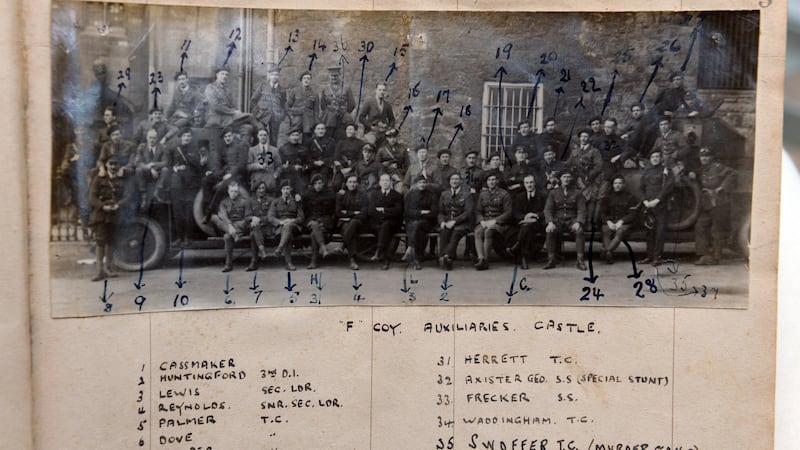 29
23
11
12
13
14
36
30
15
16
17
18
19
20
21
22
25
26
27
33
8
9
10
6
7
5
H
3
4
L
3
2
1
C
24
28
35
34
"F" COY. AUXILIARIES. CASTLE.
1 CASSMAKER
2 HUNTINGFORD 3RD D.I.
3 LEWIS SEC. LDR.
4 REYNOLDS. SNR. SEC. LDR.
5 PALMER T.C.
6 DOVE "
31 HERRETT T.C.
32 AXISTER GEO. S.S (SPECIAL STUNT)
33 FRECKER S.S.
34 WADDINGHAM. T.C.
35 SWOFFER T.C. (MURDER